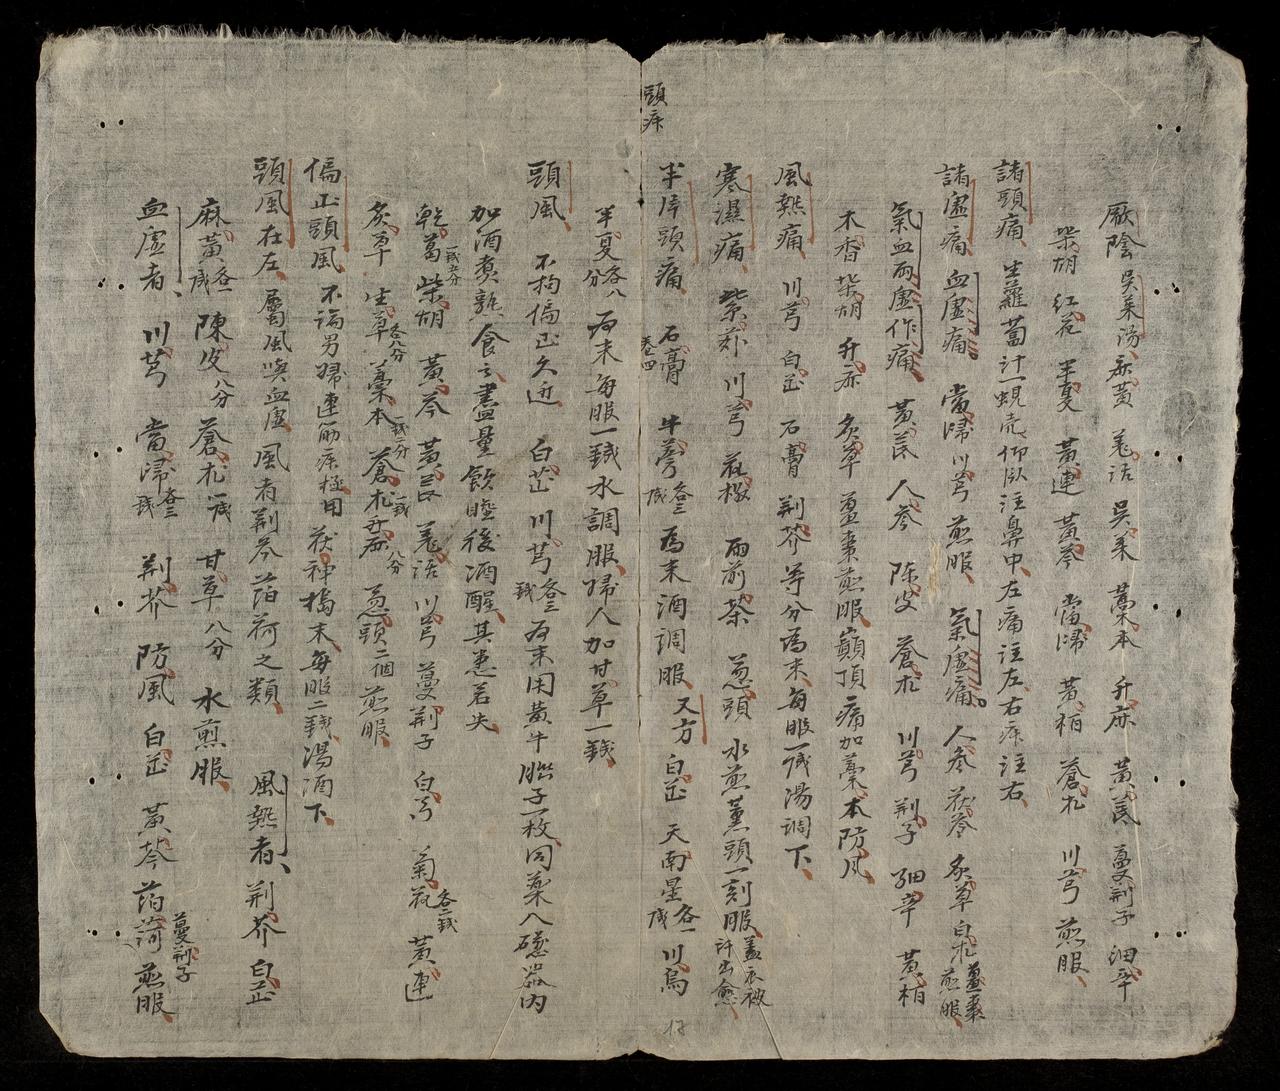 厥陰 吳茱湯 麻黃 羌活 吳茱 藁本 升麻 黃芪 蔓荆子 細辛
柴胡 紅花 半夏 黃連 黃芩 當歸 黃柏 蒼朮 川芎 煎服
諸頭痛 生蘿葍汁一蜆壳仰臥注鼻中左痛注左右疼注右
諸虛痛 血虛痛 當歸 川芎 煎服 氣虛痛 人參 茯苓 炙草 白朮 薑棗煎服
氣血兩虛作痛 黃芪 人參 陳皮 蒼朮 川芎 荆子 細辛 黃柏
木香 柴胡 升麻 炙草 薑棗煎服巔頂痛加藁本防風
風熱痛 川芎 白芷 石膏 荆芥等分為末每服一戔湯調下
寒濕痛 紫蘇 川芎 花椒 雨前茶 葱頭 水煎薰頭一刻服蓋衣被汗出愈
頭疼
半邊頭痛 石膏 牛蒡各三戔為末酒調服 又方 白芷 天南星各一戔 川烏
卷四
12
半夏各八分 為末每服一錢水調服婦人加甘草一錢
頭風 不拘偏正久近 白芷 川芎各三錢為末用黃牛腦子一枚同藥入磁器內
加酒煮熟食之盡量飲睡後酒醒其患若失
乾葛一錢五分 柴胡 黃芩 黃芪 羌活 川芎 蔓荆子 白芍 菊花各二錢 黃連
炙草 生草各八分 藁本一錢二分 蒼朮一錢 升麻八分 葱頭二個煎服
偏正頭風 不論男婦連筋疼極用 茯神搗末每服二錢湯酒下
頭風在左 屬風與血虛風者荆芥萡荷之類 風熱者 荆芥 白芷
麻黃各一戔 陳皮八分 蒼朮一戔 甘草八分 水煎服
血虛者 川芎 當歸各三錢 荆芥 防風 白芷 黃芩 萡荷 蔓荆子 煎服